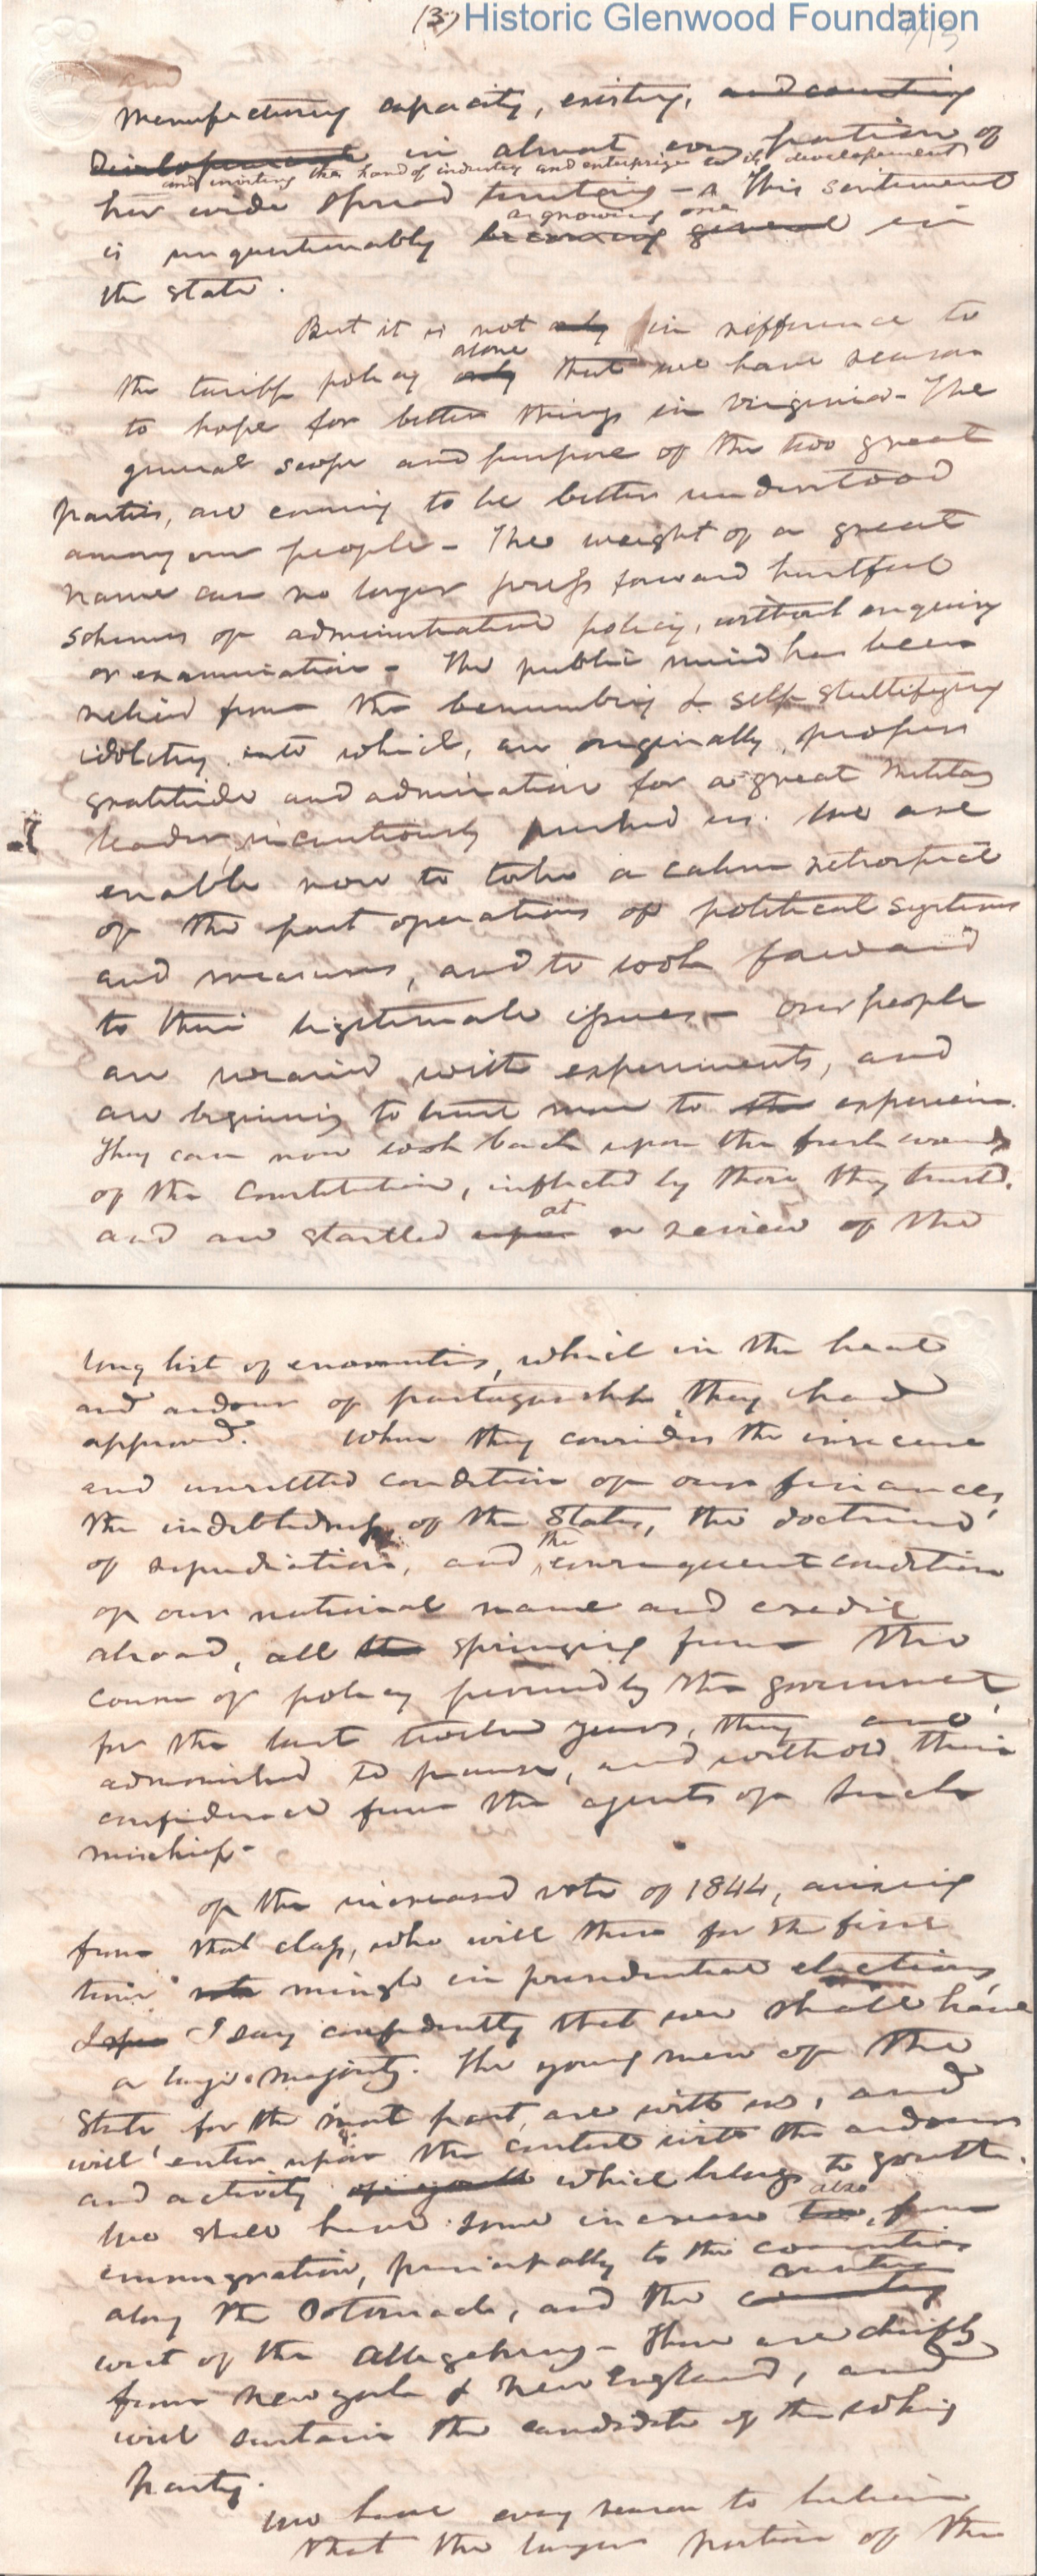 (3) Historic Glenwood Foundation
Manufacturing capacity, existing, and courting
Development in almost every portion of
and inviting the hand of industry and enterprize to its developement
her wide spread territory - This sentiment
a growing one
is unquestionably becoming general in
the state.
But it is not only in refference to
alone
the tariff policy only that we have reason
to hope for better things in Virginia - The
general scope and purpose of the two great
parties, are coming to be better understood
among our people - The weight of a great
name can no longer press forward hurtful
schemes of administrative policy, without enquiry
or examination - The public mind has been
relievd from the benumbing & self stultifying
idolitry into which, an originally, proper
gratitude and admiration for a great military
leader, incautiously rushed us. We are
enable now to take a calm retrospect
of the past operations of political systems
and measures, and to look forward
to their legitimate issues - our people
are wearied with experiments, and
are begining to trust more to the experience.
They can now look back upon the fresh wounds
of the Constitution, inflicted by those they trusted.
at
and are startled upon a review of the
long list of enormities, which in the heat
and ardour of partizanship they had
approved. When they consider the insecure
and unsettled condition of our finances,
the indebtedness of the States, the doctrine
the
of repudiation, and consequent condition
of our national name and credit
abroad, all the springing from the
course of policy pursued by the government
for the last twelve years, they are
admonished to pause, and withold their
confidence from the agents of such
mischief -
Of the increased vote of 1844, arising
from that class, who will then for the first
time vote mingle in presidential elections,
I say confidently that we shall have
a large majority. The young men of the
State for the most part, are with us, and
will enter upon the contest with the ardour
and activity of youth which belongs to youth.
also
We shall have some increase too, from
immigration, principally to the counties
along the Potomack, and the country
counties
west of the Allegehany - These are chiefly
from New York & New England, and
will sustain the candidate of the whig
party.
We have every reason to believe
that the larger portion of the